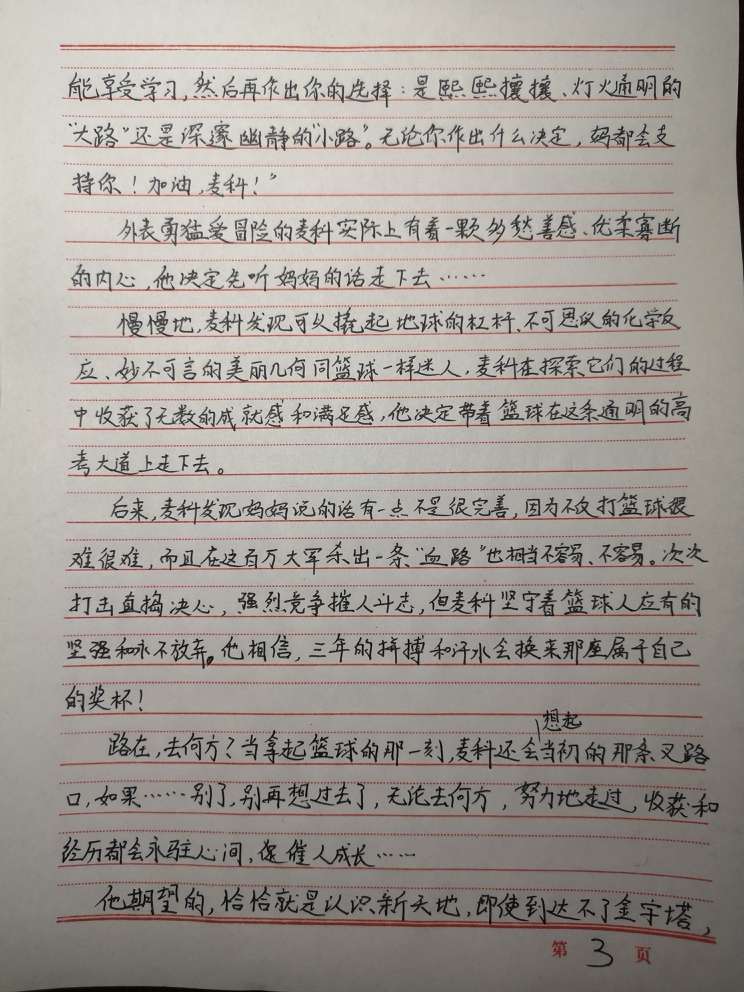 能享受学习，然后再作出你的选择：是熙熙攘攘、灯火通明的
“大路”还是深邃幽静的“小路”。无论你作出什么决定，妈都会支
持你！加油，麦科！”
外表勇猛爱冒险的麦科实际上有着一颗多愁善感、优柔寡断
的内心，他决定先听妈妈的话走下去……
慢慢地，麦科发现可以撬起地球的杠杆、不可思议的化学反
应、妙不可言的美丽几何同篮球一样迷人，麦科在探索它们的过程
中收获了无数的成就感和满足感，他决定带着篮球在这条通明的高
考大道上走下去。
后来，麦科发现妈妈说的话有一点不是很完善，因为不仅打篮球很
难很难，而且在这百万大军杀出一条“血路”也相当不容易、不容易。次次
打击直捣决心，强烈竞争摧人斗志，但麦科坚守着篮球人应有的
坚强和永不放弃。他相信，三年的拼搏和汗水会换来那座属于自己
的奖杯！
路在，去何方？当拿起篮球的那一刻，麦科还会想起当初的那条叉路
口，如果……别了，别再想过去了，无论去何方，努力地走过，收获和
经历都会永驻心间，促催人成长……
他期望的，恰恰就是认识新天地，即使到达不了金字塔，
第 3 页